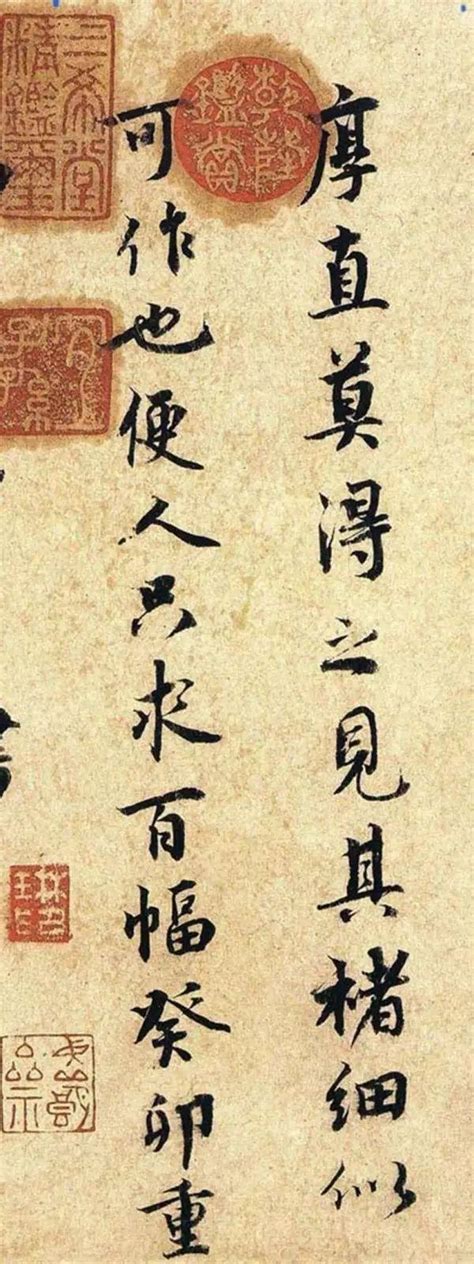 厚直莫得之見其楮細似
可作也便人只求百幅癸卯重
乾隆鑑賞
三希堂精鑑璽
宜子孫